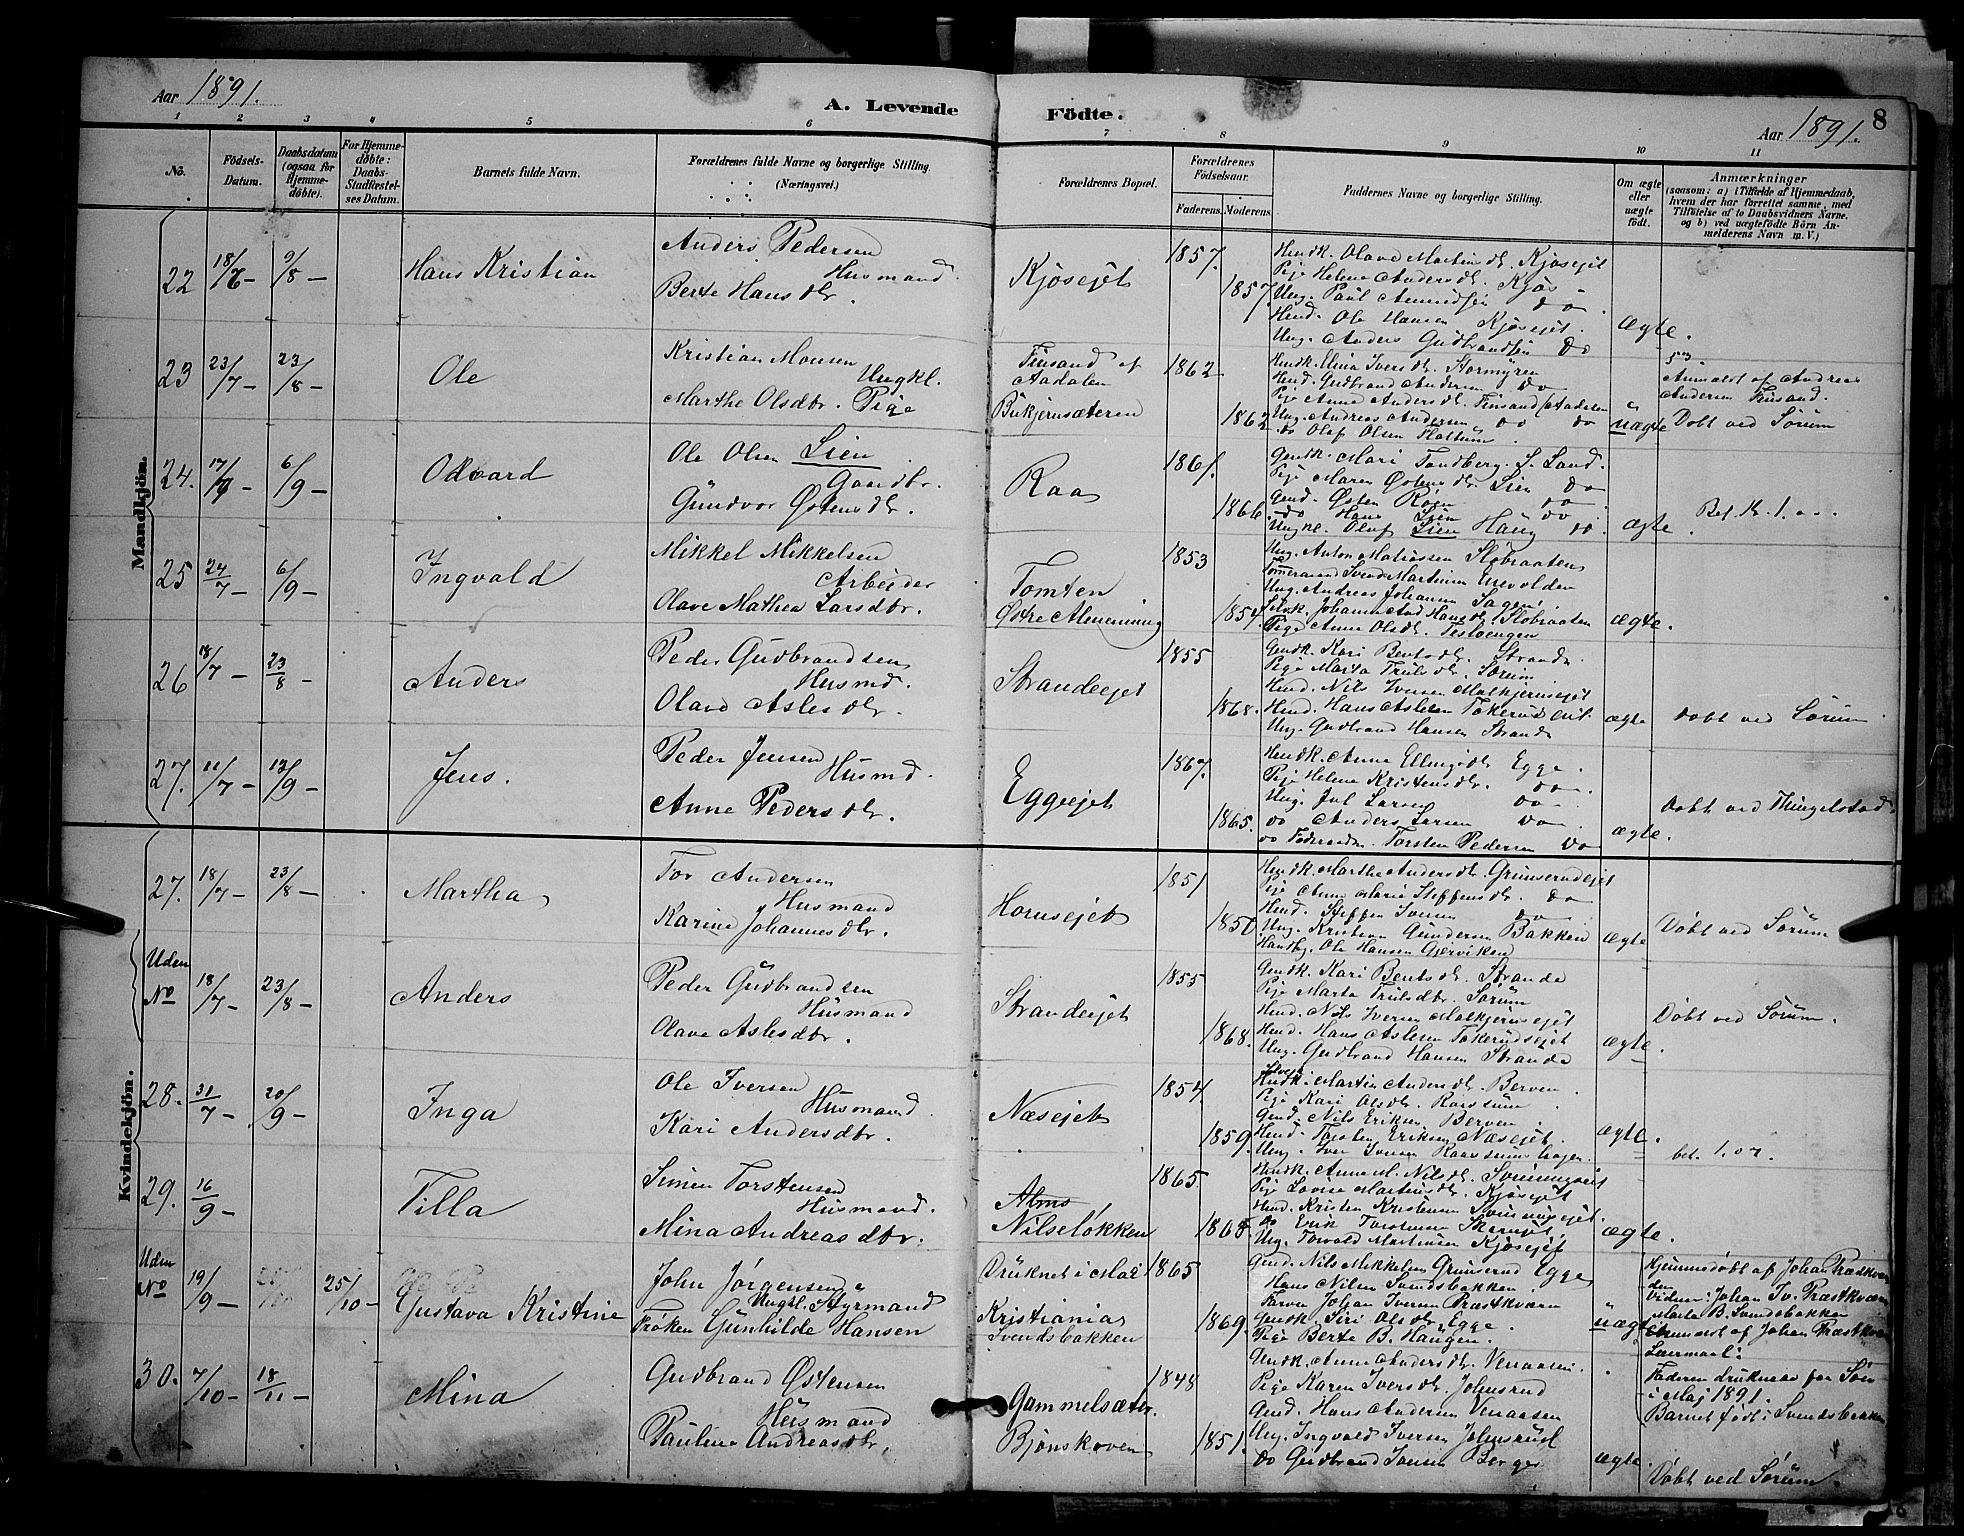 Aar 1891.
A. Levende Födte.
Aar 1891. 8
1 2 3 4 5 6 7 8 9 10 11
No.
Födsels-Datum.
Daabsdatum (ogsaa for Hjemme-döbte).
For Hjemme-döbte: Daabs-Stadfæstel-ses Datum.
Barnets fulde Navn.
Forældrenes fulde Navne og borgerlige Stilling.
(Næringsvei.)
Forældrenes Bopæl.
Forældrenes Födselsaar.
Faderens. Moderens.
Faddernes Navne og borgerlige Stilling.
Om ægte eller uægte födt.
Anmærkninger
(saasom: a) i Tilfælde af Hjemmedaab, hvem der har forrettet samme, med Tilföielse af to Daabsvidners Navne. og b) ved uægtefödte Börn An-melderens Navn m. V.)
Mandkjön.
22 18/7 - 9/8 - Hans Kristian
Anders Pedersen
Husmand.
Berte Hansdtr.
Kjøsejet
1857.
1857.
Hmdk. Olave Martinsdtr. Kjøsejet
Pige Helene Andersdtr. Kjøs
Ung. Paul Amundsen do
Hmd. Ole Hansen Kjøsejet.
Ung. Anders Gudbrandsen do
ægte.
23 23/7 - 23/8 - Ole
Kristian Monsen
Ungkl.
Marthe Olsdtr. Pige
Finsand i Aadalen
Bukjernsæteren
1862
1862.
Hmdk. Elina Iversdtr. Stormyren
Hmd. Gudbrand Andersen do
Pige Anne Andersdtr. Finsand i Aadalen
Ung. Andreas Andersen do do
do Olaf Olsen
uægte
Anmeldt af Andreas
Andersen Finsand.
Døbt ved Sørum
24. 17/7 6/9 - Odvard
Ole Olsen Lien
Gaardbr.
Gundvor Østensdtr.
Raa
1861.
1866.
Gmdk. Mari Tandberg. S. Land.
Pige Maren Østensdtr. Lien do
Gmd. Østen Røen do
do Hans Lien do
Ungkl. Olaf Lien Haug do
ægte.
Bet. Kr. 1.
25 24/7 - 6/9 - Ingvald
Mikkel Mikkelsen
Arbeider
Olave Mathea Larsdtr.
Tomten
Østre Almenning
1853
1857.
Ung. Anton Mathiassen Slobraaten
Tømmermand Svend Martinsen Enevolden
Ung. Andreas Johansen Sagen.
Pige Anne Olsdtr.
ægte.
26 18/7 - 23/8 - Anders
Peder Gudbrandsen
Husmd.
Olave Aslesdtr.
Strandeejet
1855
1868.
Gmdk. Kari Bentsdtr. Strande
Pige Marta Trulsdtr. Sørum
Hmd. Nils Iversen Malkjernsejet
Hmd. Hans Aslesen Tokerudsejet.
Ung. Gudbrand Hansen Strande
ægte
Døbt ved Sørum
27. 11/7 - 13/9 - Jens.
Peder Jensen
Husmd.
Anne Pedersdtr.
Eggeejet
1867.
1865.
Hmdk. Anne Ellingsdtr. Egge.
Pige Helene Kristensdtr. do
Ung. Jul Larsen do
do Anders Larsen do
do Torsten Pedersen do
ægte.
Døbt ved Thingelstad
Kvindekjön.
27. 18/7 - 23/8 - Martha
Tor Andersen
Husmand
Karine Johannesdtr.
Hornsejet
1851
1850
Hmdk. Marthe Andersdtr. Grinerudejet
Pige Anne Marie Steffensdtr. do
Hmd. Steffen Iversen do
Ung. Kristian Gundersen Bakken
Handlg. Ole Hansen Gjerviken
ægte
Døbt ved Sørum
Uden No 18/7 - 23/8 - Anders
Peder Gudbrandsen
Husmand
Olave Aslesdtr.
Strandeejet
1855
1868.
Gmdk. Kari Bentsdtr. Strande
Pige Marta Trulsdtr. Sørum
Hmd. Nils Iversen Malkjernsejet
Hmd. Hans Aslesen Tokerudsejet
Ung. Gudbrand Hansen Strande
ægte.
Døbt ved Sørum.
28. 31/7 - 20/9 - Inga
Ole Iversen
Husmand.
Kari Andersdtr.
Næsejet
1854.
1859.
Hmdk. Martin Andersdtr. Berven
Pige Kari Olsdtr.
Gmd. Nils Eriksen Berven
Hmd. Torsten Eriksen Næsejet.
Ung. Iver Iversen
ægte.
bet. 1.07.
29. 16/9 - Tilla
Simen Torstensen
Husmand.
Mina Andreasdtr.
Nilseløkken
1865.
1868.
Hmdk. Anne M. Nilsdtr. Svinningsejet
Pige Lovise Martinsdtr. Kjøsejet
Hmd. Kristen Kristensen Svinningsejet.
do Erik Torstensen
Ung. Torvald Martinsen Kjøsejet
ægte.
Uden No 19/9 - 25/10 - Gustava Kristine
John Jørgensen
Ungkl. Styrmand
Frøken Gunhilde Hansen
Druknet i Mai
Kristiania
Svendsbakken
1865
1869.
Gmd. Nils Mikkelsen Grinerud Egge
Hans Nilsen Svendsbakken.
Farver Johan Iversen Præstkværn
Gmdk. Siri Olsdtr. Egge.
Pige Berte B. Haugen.
uægte
Hjemmedøbt af Johan Præstkværn
Vidner: Johan Iv. Præstkværn
Marte B. Svendsbakken
Anmeldt af Johan Præstkværn
Faderen druknede
i Maj 1891.
Barnet født i Svendsbakken
30. 7/10 - 18/11 - Mina
Gudbrand Østensen
Husmand
Pauline Andreasdtr.
Gammelsæter.
Bjønskoven
1848
1851.
Gmdk. Anne Andersdtr. Venaasen
Pige Karen Iversdtr. Johnsrud
Gmd. Hans Andersen Venaasen
Ung. Ingvald Iversen Johnsrud
do Gudbrand Iversen Berger
ægte
Døbt ved Sørum.